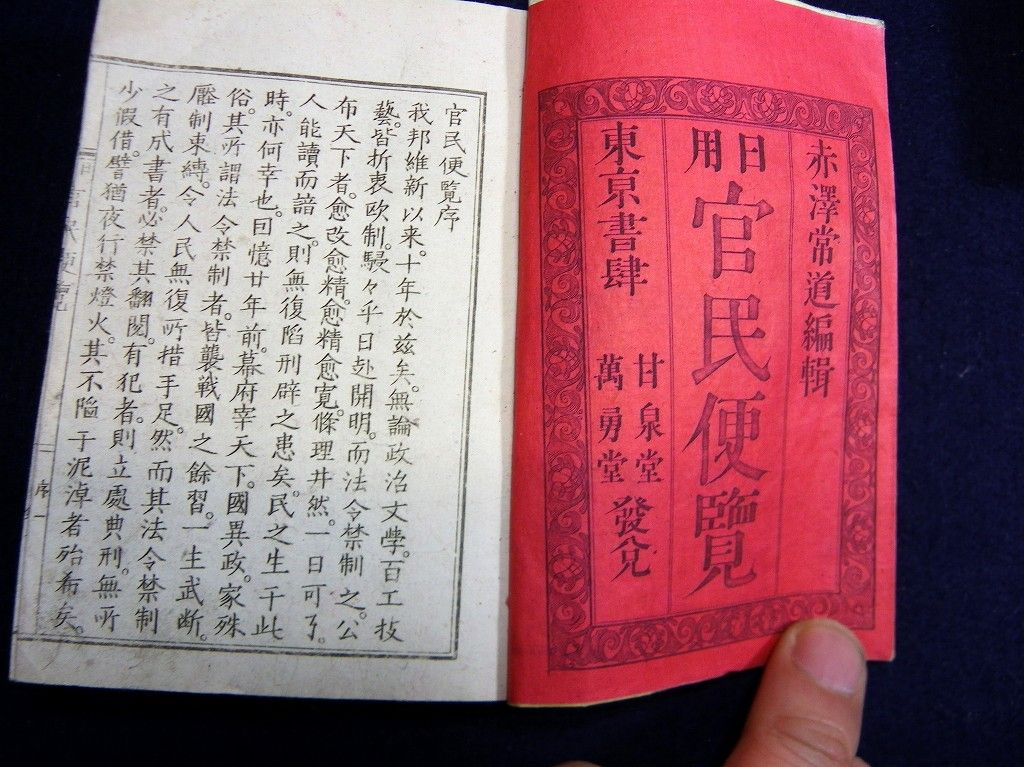 赤澤常道編輯
日用
官民便覽
東京書肆
甘泉堂
萬勇堂
發兌
官民便覧序
我邦維新以来。十年於兹矣。無論政治文學。百工技
藝。皆折衷欧制。駸々乎日赴開明。而法令禁制之。公
布天下者。愈改愈精。愈精愈寛。條理井然。一日可了。
人能讀而諳之。則無復陷刑辟之患矣。民之生于此
時。亦何幸也。回憶廿年前。幕府宰天下。國異政。家殊
俗。其所謂法令禁制者。皆襲戰國之餘習。一生武断。
壓制束縛。令人民無復所措手足。然而其法令禁制
之有成書者。必禁其翻閲。有犯者。則立處典刑。無所
少假借。譬猶夜行禁燈火。其不陷于泥淖者殆希矣。
官民便覽
序一